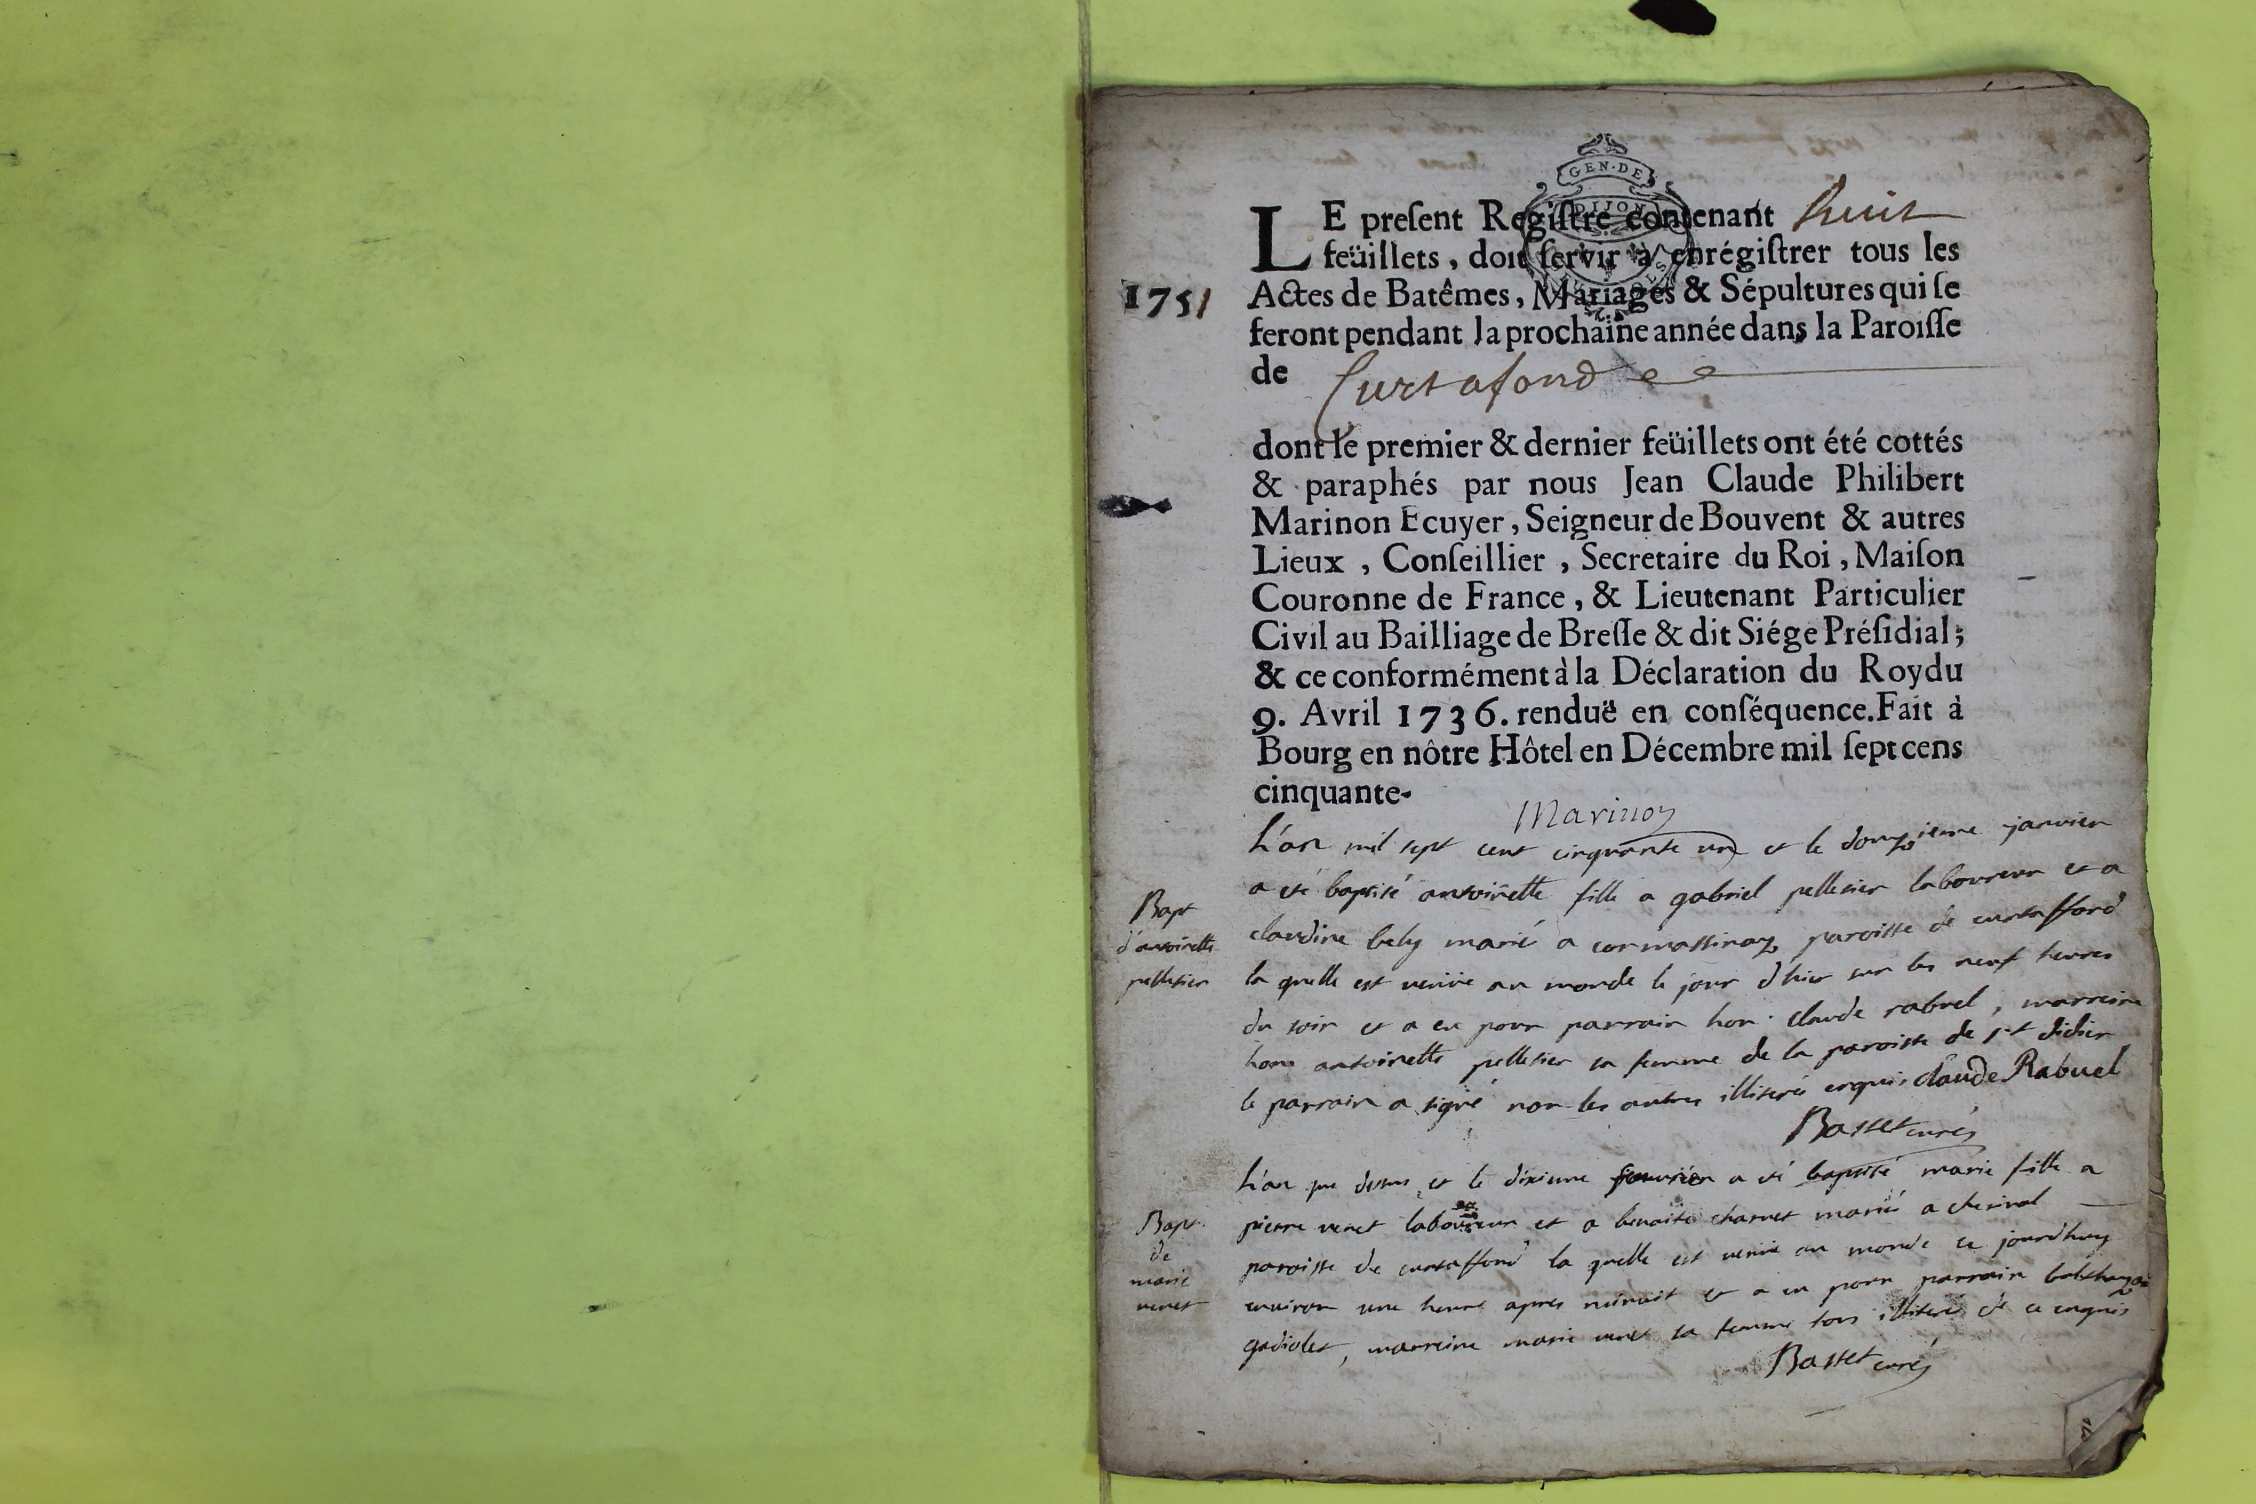 GEN·DE
DIJON
LE preſent Regiſtre contenant huit
feüillets, doit ſervir à enrégiſtrer tous les
1751 Actes de Batêmes, Mariages & Sépultures qui ſe
feront pendant la prochaine année dans la Paroiſſe
de Curtafond
dont le premier & dernier feüillets ont été cottés
& paraphés par nous Jean Claude Philibert
Marinon Ecuyer, Seigneur de Bouvent & autres
Lieux, Conſeillier, Secretaire du Roi, Maiſon
Couronne de France, & Lieutenant Particulier
Civil au Bailliage de Breſſe & dit Siége Préſidial;
& ce conformément à la Déclaration du Roy du
9. Avril 1736. renduë en conſéquence. Fait à
Bourg en nôtre Hôtel en Décembre mil ſept cens
cinquante-
Marinon
L'an mil sept cent cinquante un et le douzieme janvier
a été baptisé antoinette fille a gabriel pelletier laboureur et a
claudine bely marié a cormassinay paroisse de curtaffond
la quelle est venüe au monde le jour d'hier sur les neuf heures
du soir et a eu pour parrain hon. claude rabuel, marreine
hon antoinette pelletier sa femme de la paroisse de st didier
le parrain a signé non les autres illiterés enquis claude Rabuel
Basset curé
Bapt
d'antoinette
pelletier
L'an que dessus et le dixieme fevrier a été baptisé marie fille a
pierre venet laboureur et a benoite charvet marié a
paroisse de curtaffond la quelle est venüe au monde ce jourdhuy
environ une heure apres minuit et a eu pour parrain
gadiolet, marreine marie venet sa femme tous illiterés de ce enquis
Basset curé
Bapt
de
marie
venet